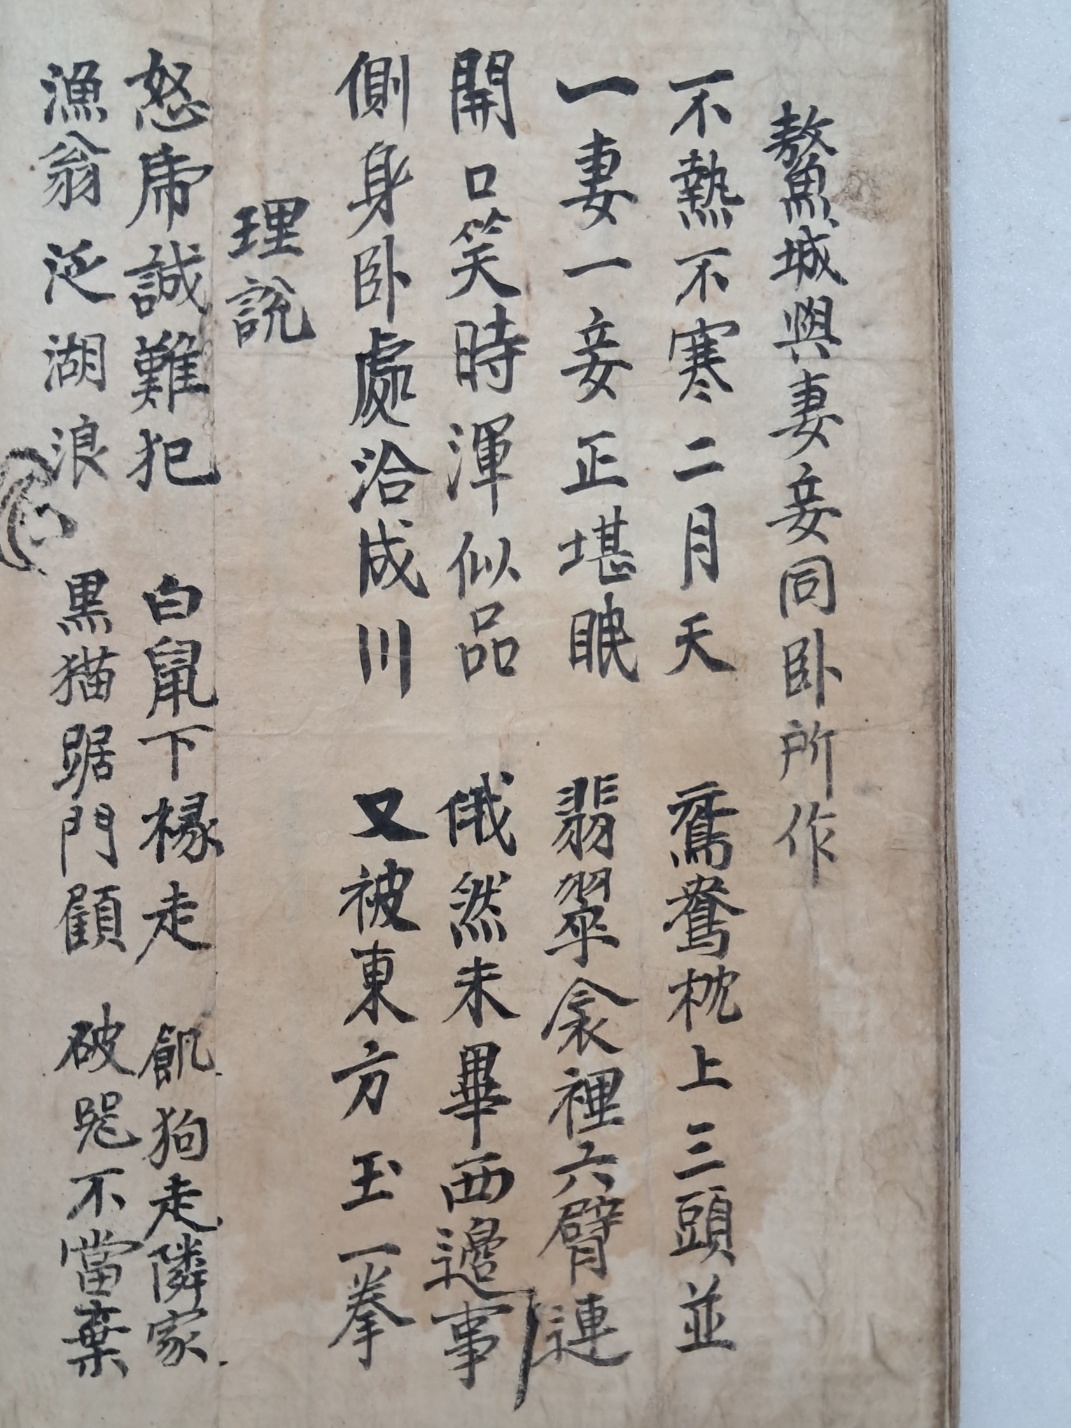 鰲城與妻妾同卧所作
不熱不寒二月天 鴛鴦枕上三頭並
一妻一妾正堪眠 翡翠衾裡六臂連
開口笑時渾似品 俄然未畢西邊事
側身卧處洽成川 又被東方玉一拳
理說
怒席誠難犯 白鼠下椽走 飢狗走隣家
漁翁泛湖浪 黒猫踞門顧 破 不當棄